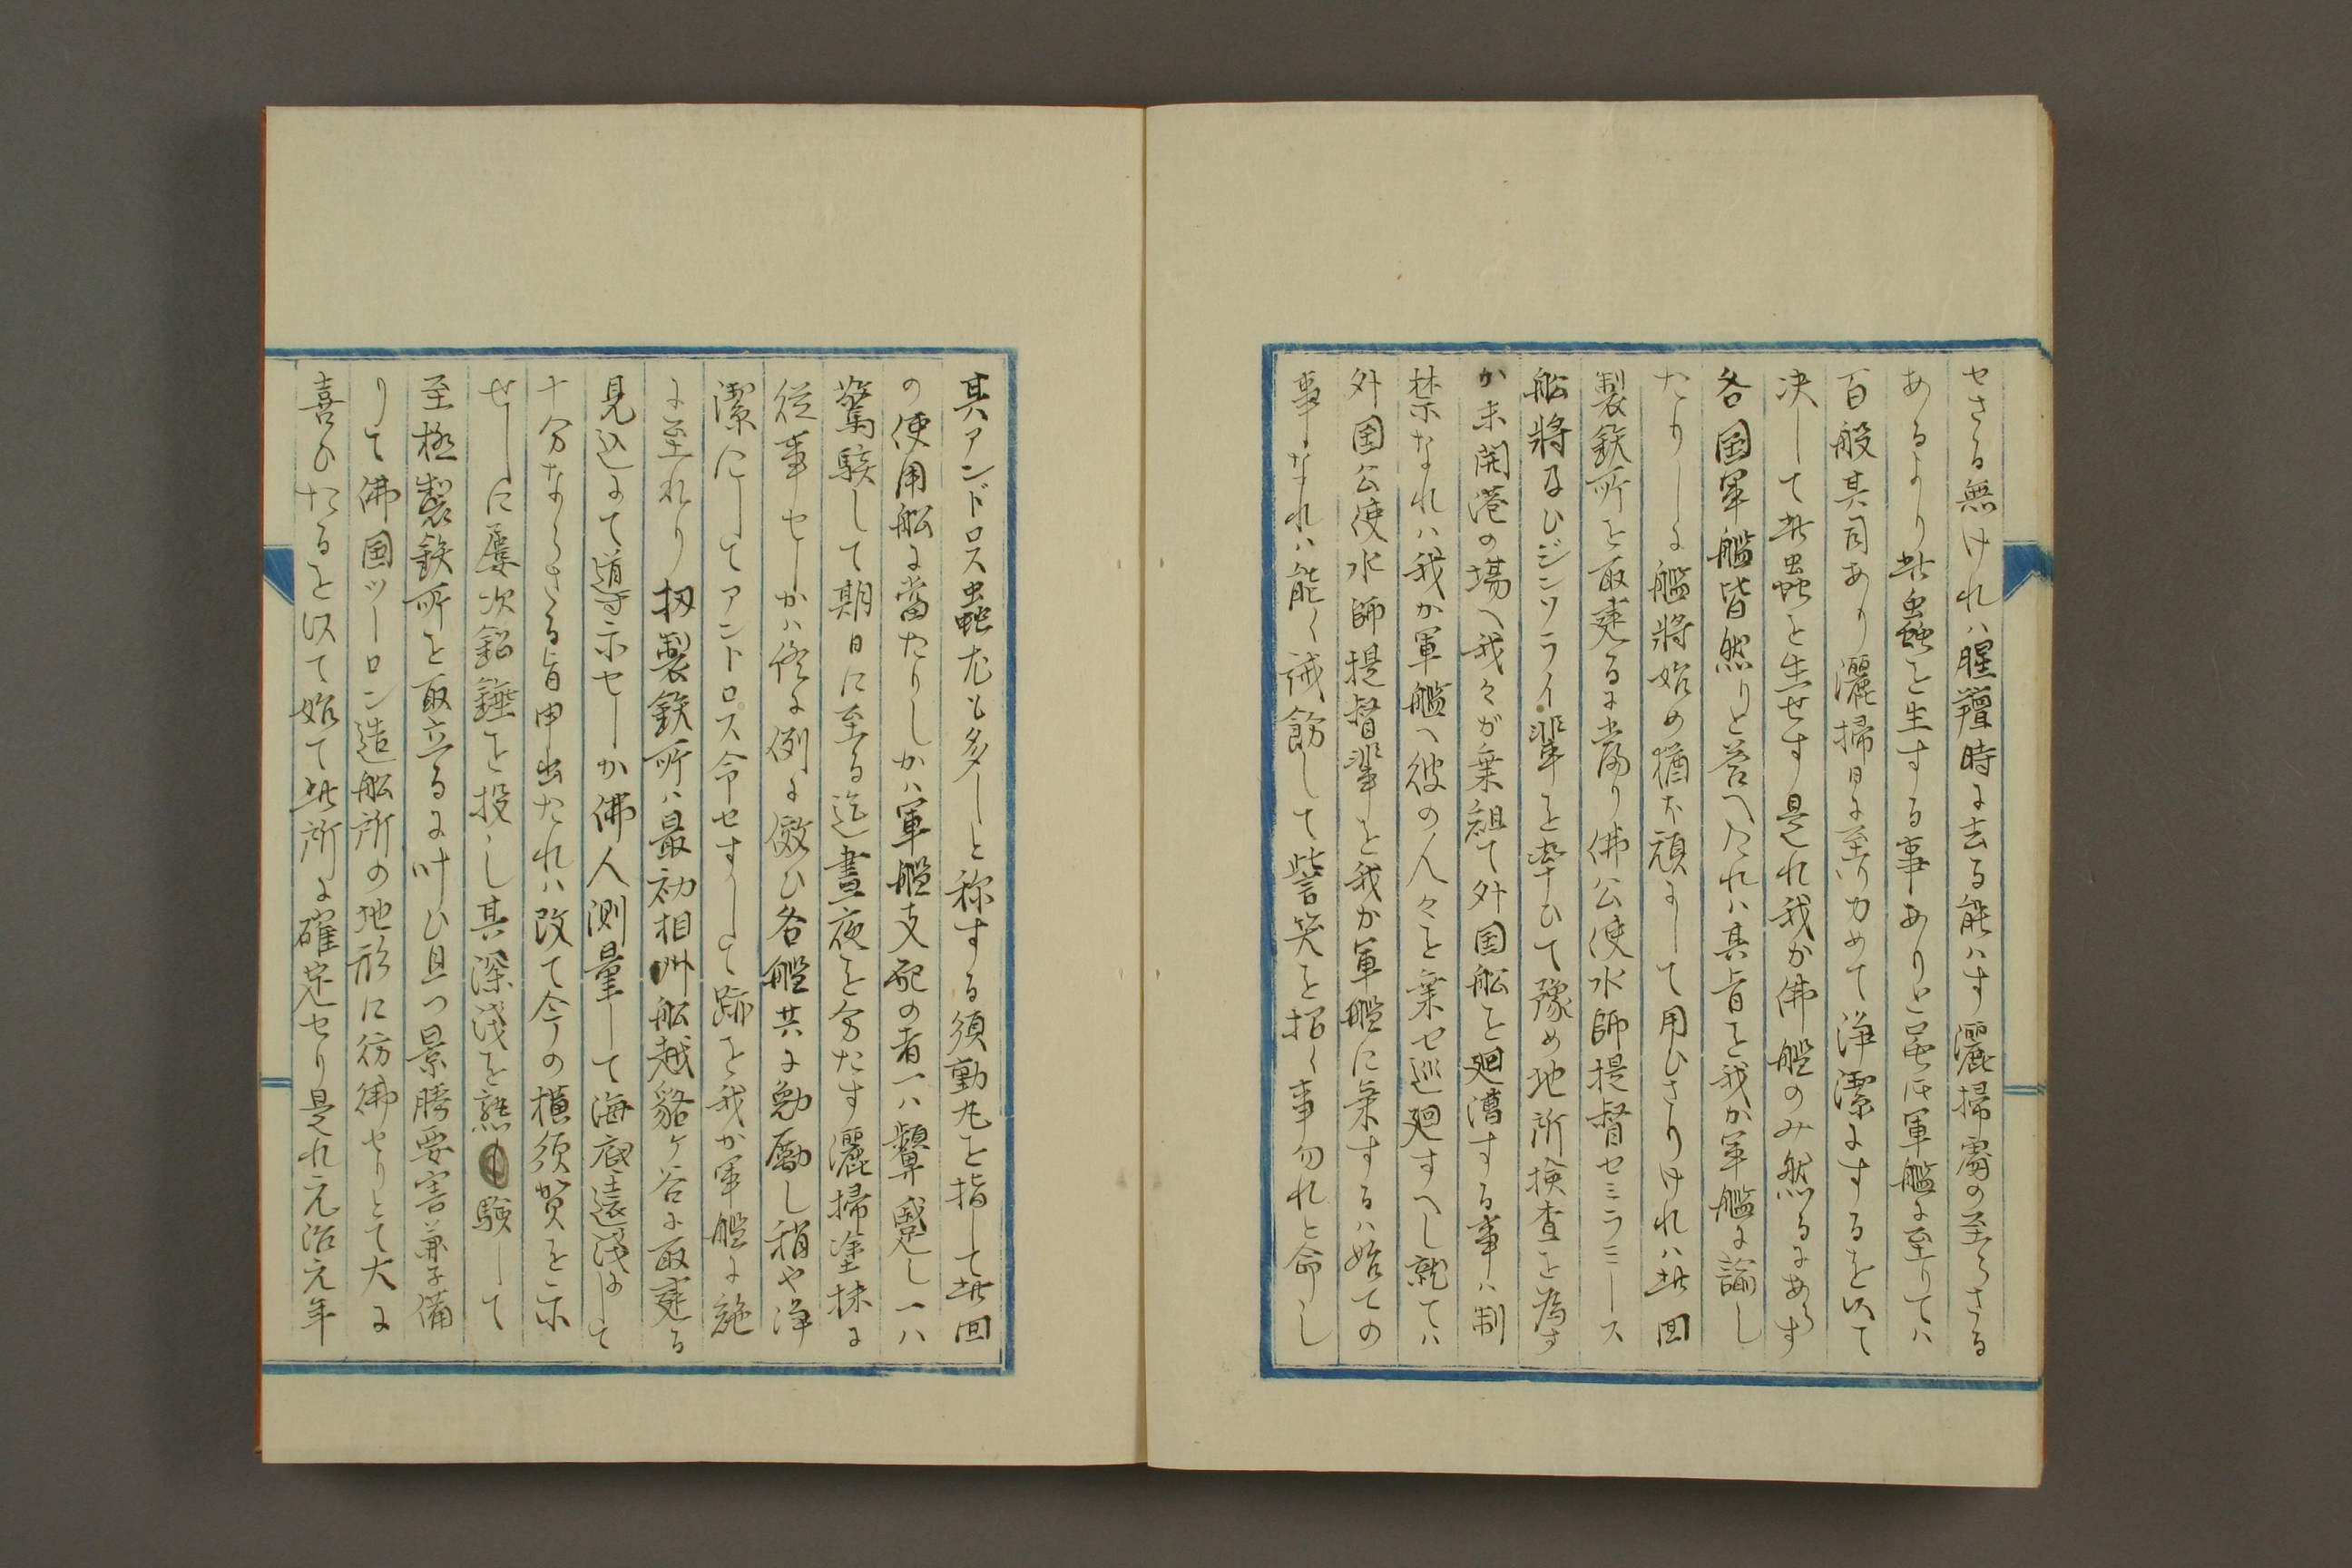 セさる無けれハ腥羶時に去る能ハす灑掃處の至らさる
あるより此蟲を生する事ありと云々軍艦に至りてハ
百般其司あり灑掃日に至り力めて浄潔にするを以て
决して此蟲を生せす是れ我か佛艦のみ然るにあらす
各国軍艦皆然りと答へたれハ其旨を我か軍艦に諭し
たりしに艦將始め猶ホ頑にして用ひさりけれハ此回
製鉄所を取建るに當り佛公使水師提督セミラミース
舩將及ひジンソライ輩を率ひて豫め地所検査を為す
か未開港の場へ我々が乗組て外国舩を廻漕する事ハ制
禁なれハ我か軍艦へ彼の人々を乗セ巡廻すへし就てハ
外国公使水師提督輩を我か軍艦に乗するハ始ての
事なれハ能く誡飭して訾笑を招く事勿れと命し
其アンドロス蟲尤も多しと称する須動丸を指して此回
の使用舩に當たりしかハ軍艦支配の者一ハ顰蹙し一ハ
驚駭して期日に至る迄晝夜を分たす灑掃塗抹に
従事セしかハ終に例に傚ひ各艦共に勉勵し稍や浄
潔にしてアンドロス令セすして跡を我か軍艦に絶
に至れり扨製鉄所ハ最初相州舩越貉ヶ谷に取建る
見込にて導示セしか佛人測量して海底遠浅にして
十分ならさる旨申出たれハ改て今の横須賀を示
せしに屡次鉛錘を投し其深浅を熟驗して
至極製鉄所を取立るに叶ひ且つ景勝要害兼子備
りて佛国ツーロン造舩所の地形に彷彿せりとて大に
喜ひたるを以て始て此所に確定セり是れ元治元年